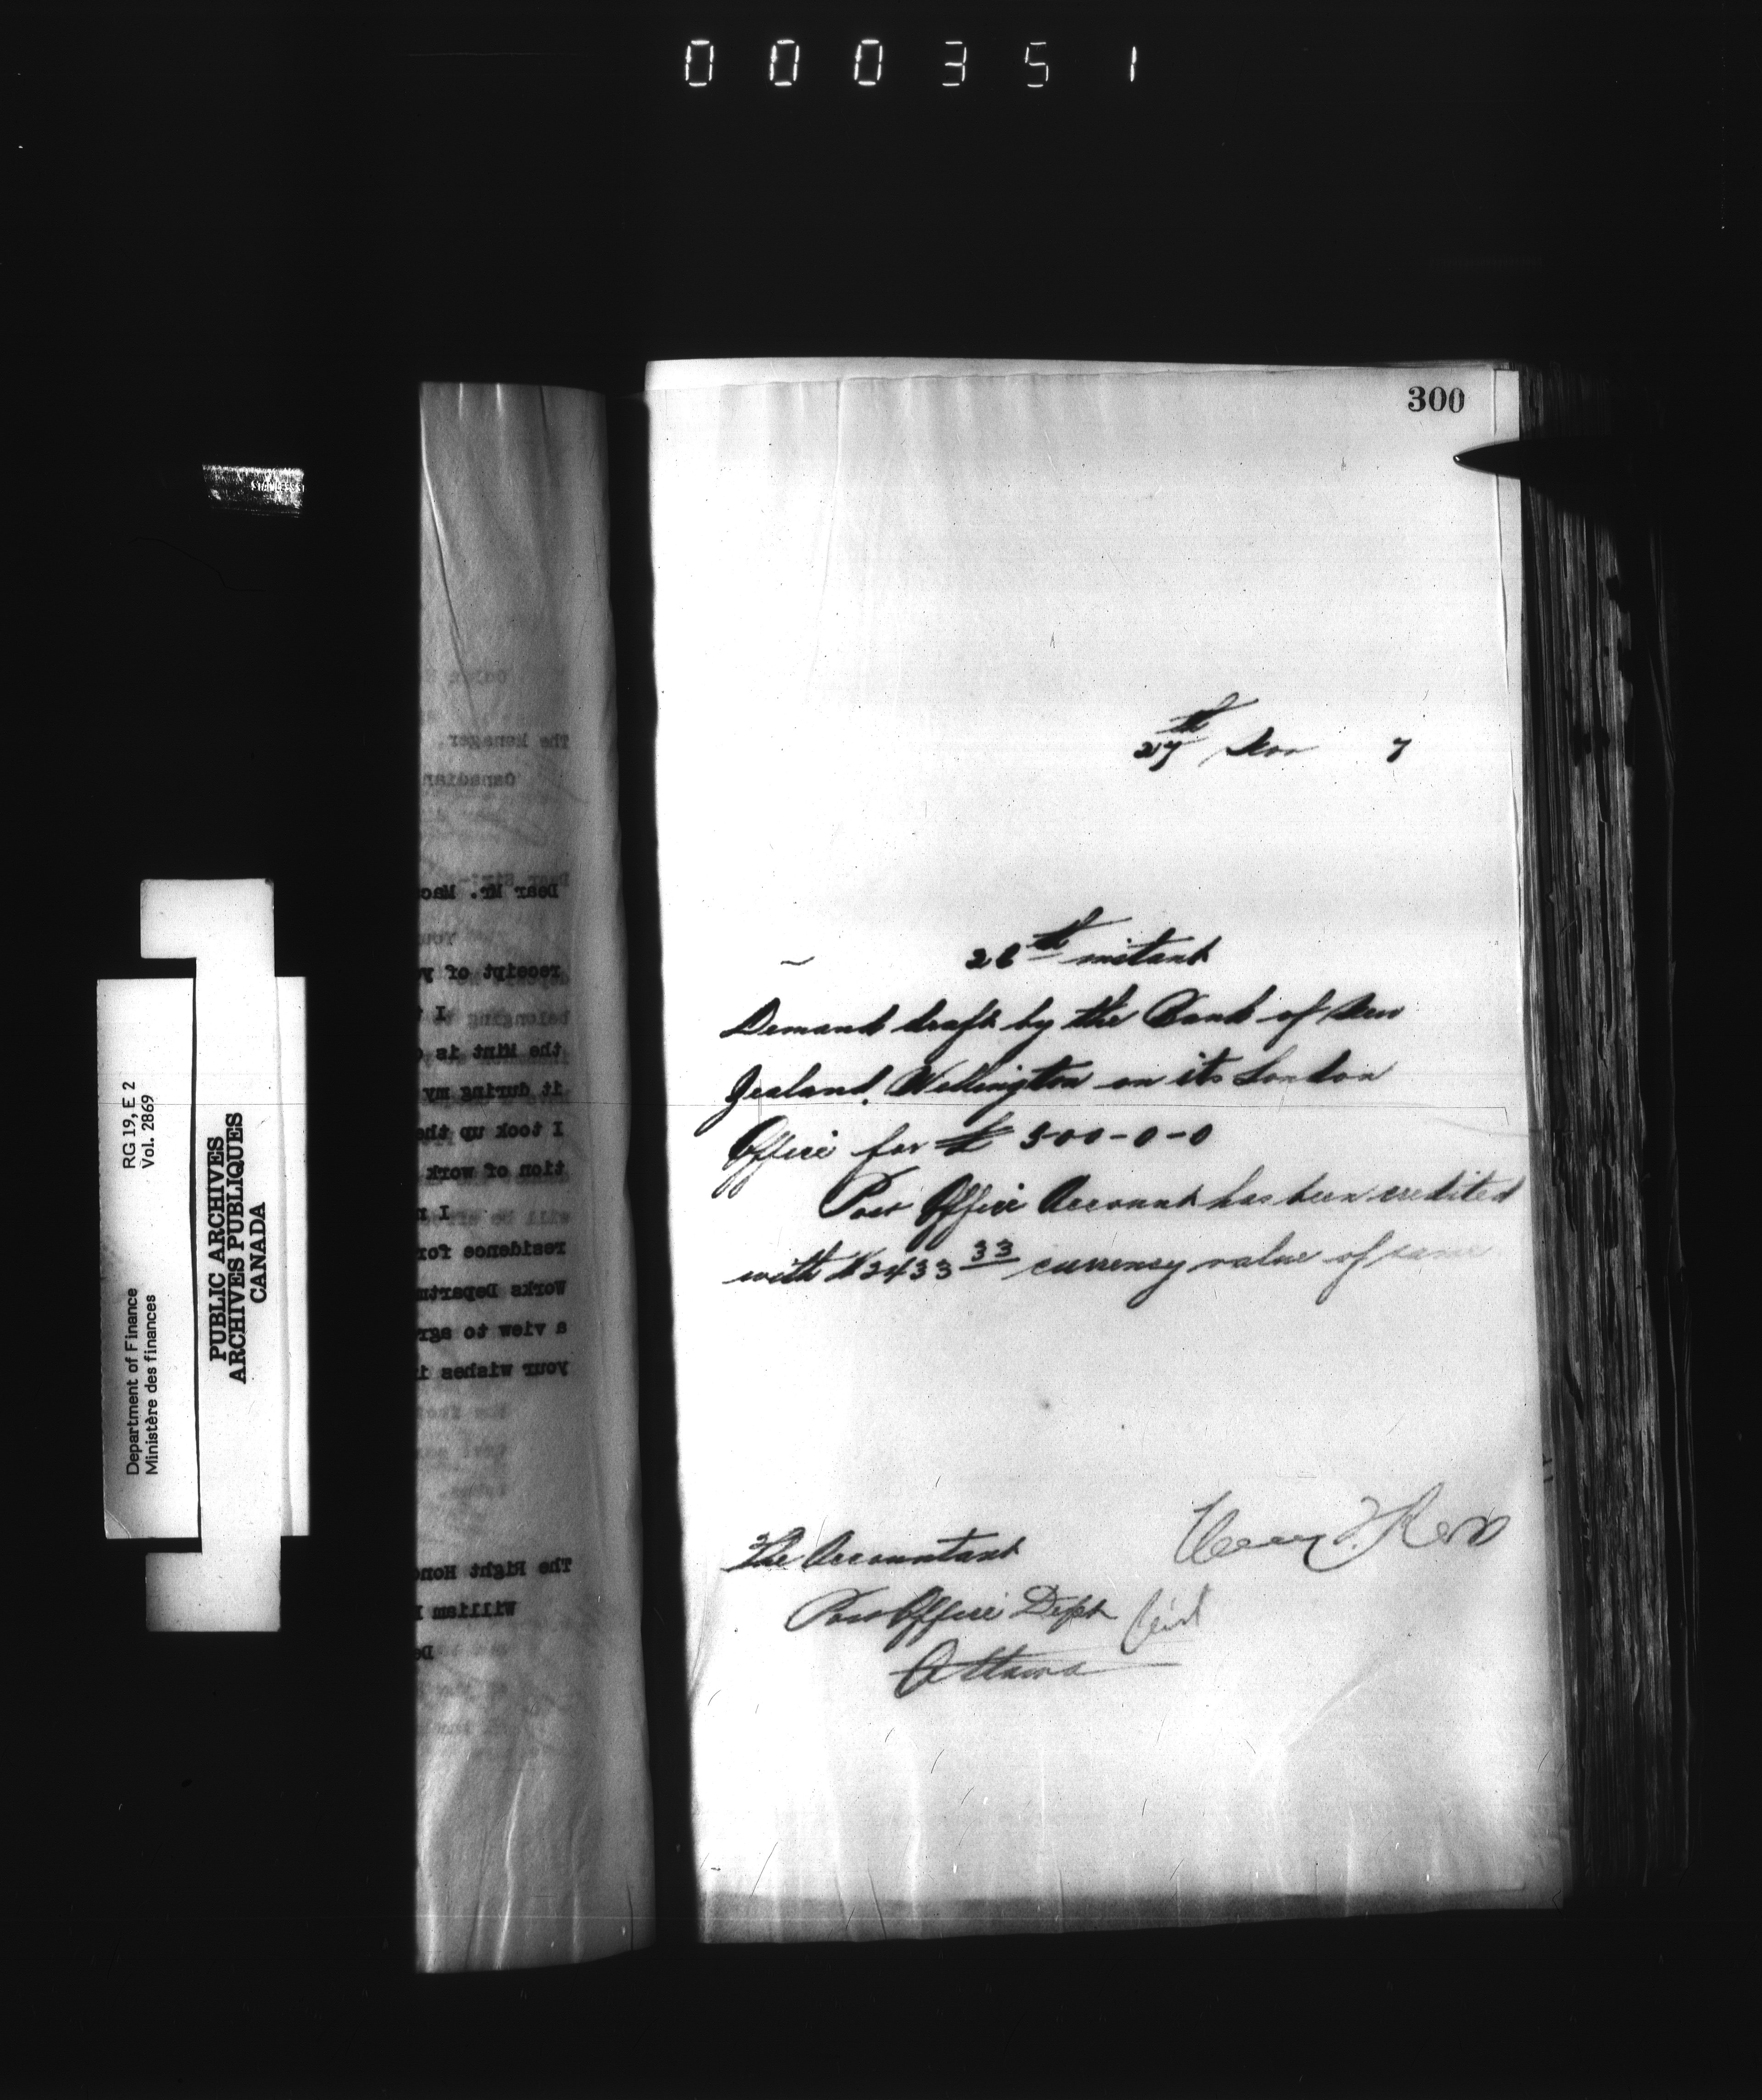 000351
300
27th Nov 7
26th instant
Demand draft by the Bank of New
Zealand, Wellington on its London
Office for £ 500-0-0
Post Office Account has been credited
with $2433 33 currency value of same
The Accountant
Post Office Dept
Ottawa
The Manager.
Canadian
Dear Mr. Mac
receipt of
belonging to
the Mint is
it during my
I took up the
tion of work
I
will be
residence for
Works Depart
a view to
your wishes
The Right Hon
William
RG 19, E 2
Vol. 2869
Department of Finance
Ministère des finances
PUBLIC ARCHIVES
ARCHIVES PUBLIQUES
CANADA